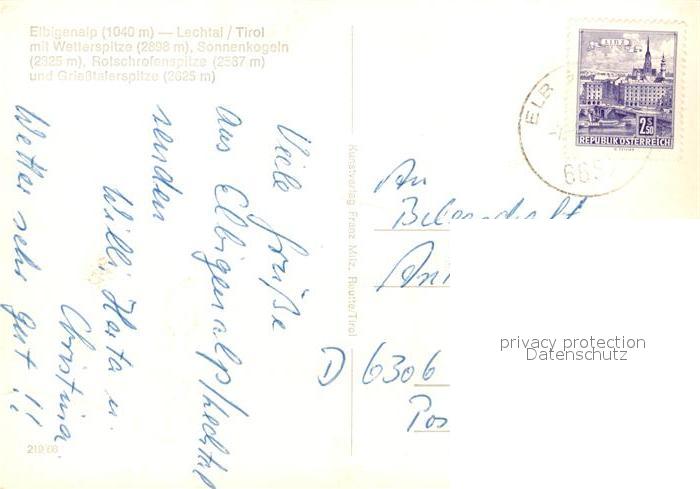 Elbigenalp (1040 m) — Lechtal / Tirol
mit Wetterspitze (2898 m), Sonnenkogeln
(2325 m), Rotschrofenspitze (2587 m)
und Grießtalerspitze (2625 m)
Viele Grüße
aus Elbigenalp/Lechtal
senden
Willi, Herta u.
Christina
Wetter sehr gut !!
219/66
Kunstverlag Franz Milz, Reutte/Tirol
LINZ
2.50 S
REPUBLIK ÖSTERREICH
ELB
665
An
D 6306
Pos
privacy protection
Datenschutz